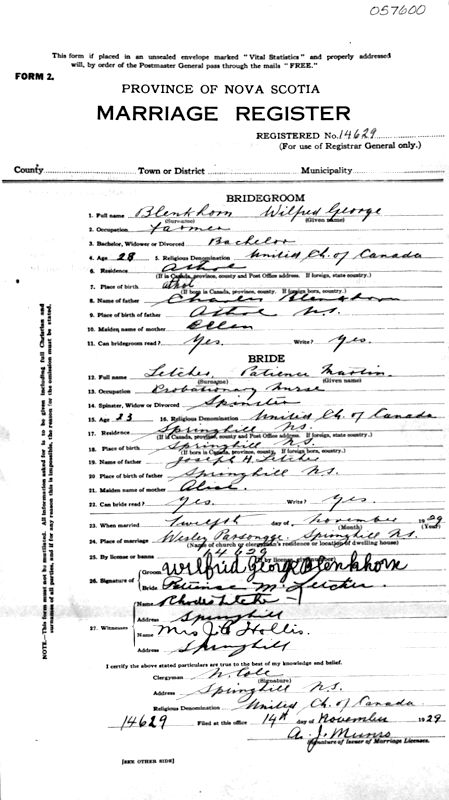 057600
This form if placed in an unsealed envelope marked "Vital Statistics" and properly addressed
will, by order of the Postmaster General pass through the mails "FREE."
FORM 2.
PROVINCE OF NOVA SCOTIA
MARRIAGE REGISTER
REGISTERED No. 14629
(For use of Registrar General only.)
County Town or District Municipality
BRIDEGROOM
1. Full name Blenkhorn Wilfred George
(Surname) (Given name)
2. Occupation Farmer
3. Bachelor, Widower or Divorced Bachelor
4. Age 28 5. Religious Denomination United Ch. of Canada
6. Residence Athol
(If in Canada, province, county and Post Office address. If foreign, state country.)
7. Place of birth Athol
(If born in Canada, province, county. If foreign born, country.)
8. Name of father Charles Blenkhorn
9. Place of birth of father Athol N.S.
10. Maiden name of mother Ellen
11. Can bridegroom read? Yes. Write? Yes.
BRIDE
12. Full name Letcher Patience Martin
(Surname) (Given name)
13. Occupation Probationary Nurse
14. Spinster, Widow or Divorced Spinster
15. Age 23 16. Religious Denomination United Ch. of Canada
17. Residence Springhill N.S.
(If in Canada, province, county and Post Office address. If foreign, state country.)
18. Place of birth Springhill N.S.
(If born in Canada, province, county. If foreign born, country.)
19. Name of father Joseph H. Letcher
20. Place of birth of father Springhill N.S.
21. Maiden name of mother Alice
22. Can bride read? Yes. Write? Yes.
23. When married Twelfth day of November 1929
(Month) (Year)
24. Place of marriage Wesley Parsonage Springhill N.S.
(Name of church or clergyman's residence or location of dwelling house)
25. By license or banns 14629
(If by license number of license)
26. Signature of Groom Wilfred George Blenkhorn
Bride Patience M. Letcher
Name Rhoda Letcher
Address Springhill
27. Witnesses Name Mrs J. E Hollis.
Address Springhill
I certify the above stated particulars are true to the best of my knowledge and belief.
Clergyman W. Cole
(Signature)
Address Springhill N.S.
Religious Denomination United Ch. of Canada
14629 Filed at this office 14th day of November 1929
A. J. Munro
(Signature of Issuer of Marriage Licenses.
[SEE OTHER SIDE]
NOTE.—This form must not be mutilated. All information asked for is to be given including full Christian and
surnames of all parties, and if for any reason this is impossible, the reason for the omission must be stated.